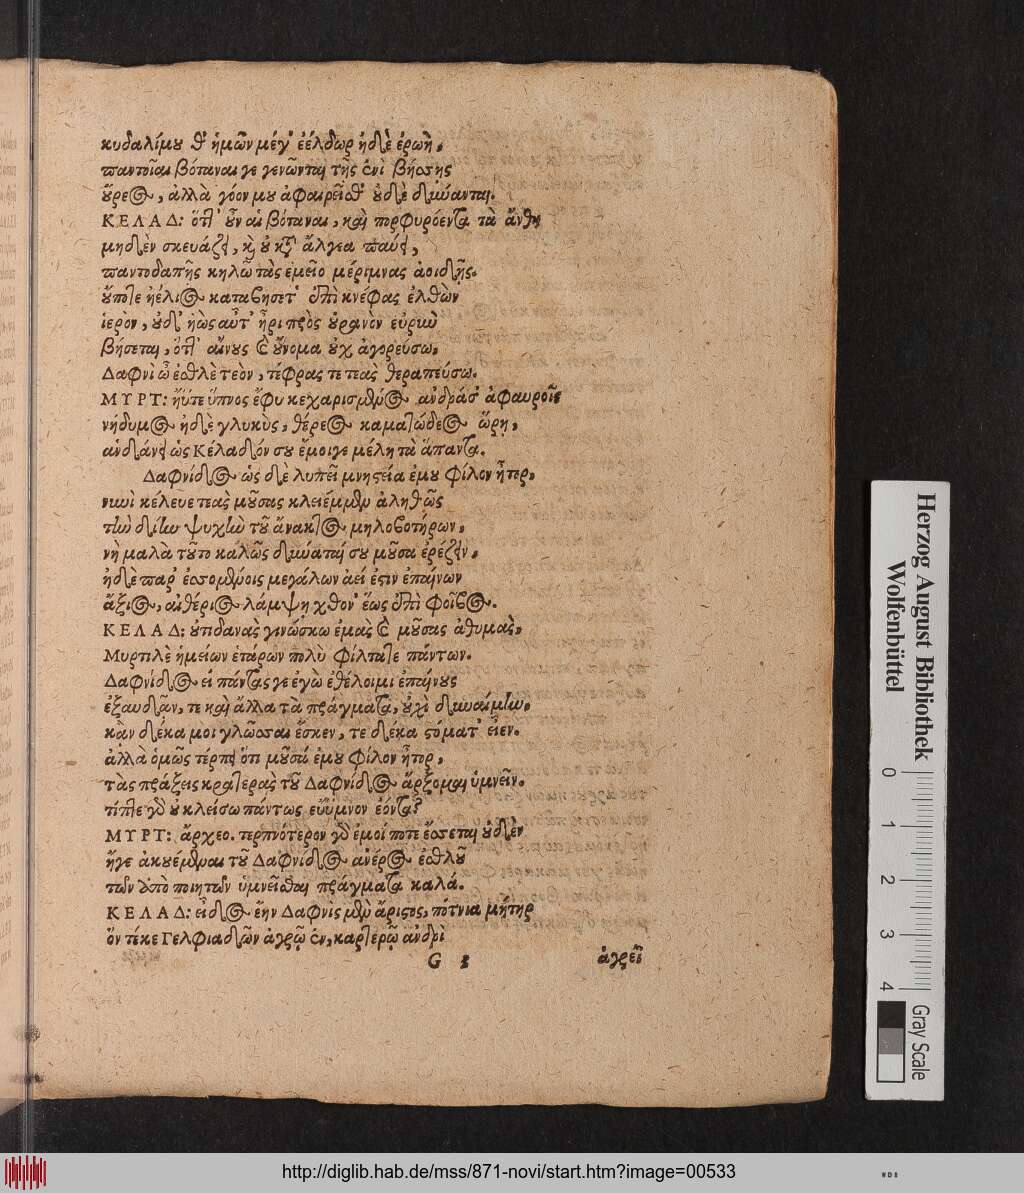 κυδαλίμου θ' ἡμῶν μέγ' ἐέλδωρ ἠδὲ ἐρωὴ.
παντοῖαι βόταναι γε γενῶνται τῆς ἐνὶ βήσσης
οὔρεος, ἀλλὰ γόον μου ἀφαιρεῖσθ' οὐδὲ δύνανται.
ΚΕΛΑΔ: ὅτι' οὖν αἱ βόταναι, καὶ πορφυρόεντα τὰ ἄνθη
μηδὲν σκευάζει, καὶ οὐ κατ' ἄλγεα παύει,
παντοδαπῆς κηλῶ τὰς ἐμεῖο μέριμνας ἀοιδῆς.
οὔποτε ἠέλιος καταβήσετ' ἐπὶ κνέφας ἐλθὼν
ἱερὸν, οὐδ' ἠὼς αὖτ' ἦρι πρὸς οὐρανὸν εὐρὺν
βήσεται, ὅτι' αἴνους καὶ οὔνομα οὐχ ἀγορεύσω.
Δαφνὶ ὦ ἐσθλὲ τεὸν, τέφρας τε τεὰς θεραπεύσω.
ΜΥΡΤ: ἠΰτε ὕπνος ἔφυ κεχαρισμένος ἀνδράσ' ἀφαυροῖς
νήδυμος ἠδὲ γλυκὺς, θέρεος καματώδεος ὥρῃ,
ἁνδάνει ὡς Κέλαδόν σου ἔμοιγε μέλη τὰ ἅπαντα.
Δαφνίδος ὡς δὲ λυπεῖ μνησεία ἐμοῦ φίλον ἦτορ,
νυνὶ κέλευε τεὰς μούσας κλειέμεναι ἀληθῶς
τὴν δίην ψυχὴν τοῦ ἄνακτος μηλοβοτήρων.
νὴ μαλὰ τοῦτο καλῶς δύναταί σου μοῦσα ἐρέζειν,
ἠδὲ παρ' ἐσσομένοις μεγάλων ἀεί ἐστιν ἐπαίνων
ἄξιος, αἰθέριος λάμψῃ χθον' ἕως ἐπὶ φοῖβος.
ΚΕΛΑΔ: οὐτιδανὰς γινώσκω ἐμὰς καὶ μούσας ἀθυμὰς,
Μυρτιλὲ ἡμείων ἑτάρων πολὺ φίλτατε πάντων.
Δαφνίδος εἰ πάντας γε ἐγὼ ἐθέλοιμι ἐπαίνους
ἐξαυδᾶν, τε καὶ ἄλλα τὰ πράγματα, οὐχὶ δυναίμην.
κἂν δέκα μοι γλῶσσαι ἔσκεν, τε δέκα στόματ' εἶεν.
ἀλλὰ ὁμῶς τέρπει ὅτι μοῦσά ἐμοῦ φίλον ἦτορ,
τὰς πράξεις κρατερὰς τοῦ Δαφνίδος ἄρξομαι ὑμνεῖν.
τίπτε γὰρ οὐ κλείσω πάντως εὔυμνον ἐόντα;
ΜΥΡΤ: ἄρχεο. τερπνότερον γὰρ ἐμοί ποτε ἔσσεται οὐδὲν
ἤγε ἀκουέμεναι τοῦ Δαφνίδος ἀνέρος ἐσθλοῦ
τῶν ὑπὸ ποιητῶν ὑμνεῖσθαι πράγματα καλά.
ΚΕΛΑΔ: εἶδος ἔην Δαφνὶς μὲν ἄριστος, πότνια μήτηρ
ὃν τέκε Γελφιαδῶν ἀγρῷ ἐν, καρτερῷ ἀνδρὶ
G 2 ἀγρεῖ
Herzog August Bibliothek
Wolfenbüttel
0 1 2 3 4
Gray Scale
http://diglib.hab.de/mss/871-novi/start.htm?image=00533